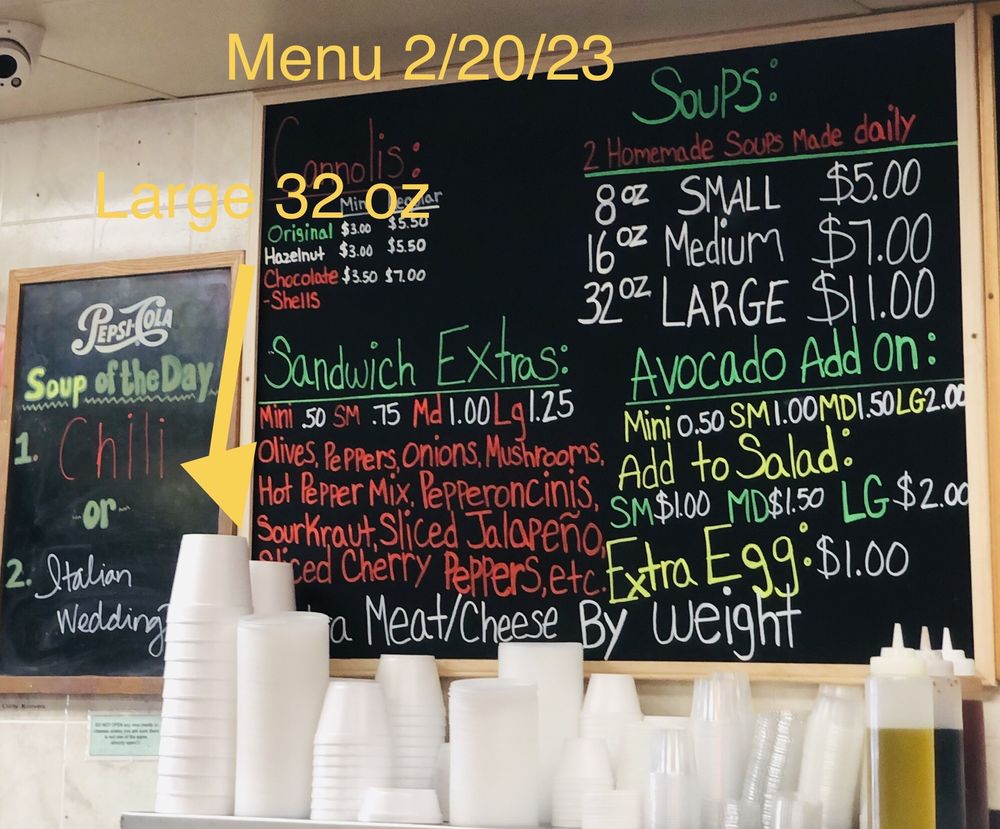 Menu 2/20/23
Large 32 oz
Cannolis:
Mini Regular
Original $3.00 $5.50
Hazelnut $3.00 $5.50
Chocolate $3.50 $7.00
-Shells
Soups:
2 Homemade Soups Made daily
8oz SMALL $5.00
16oz Medium $7.00
32oz LARGE $11.00
Sandwich Extras:
Mini .50 SM .75 Md 1.00 Lg 1.25
Olives, Peppers, Onions, Mushrooms,
Hot Pepper Mix, Pepperoncinis,
Sourkraut, Sliced Jalapeño,
Sliced Cherry Peppers, etc.
Meat/Cheese By Weight
Avocado Add On:
Mini 0.50 SM 1.00 MD 1.50 LG 2.00
Add to Salad:
SM $1.00 MD $1.50 LG $2.00
Extra Egg: $1.00
PEPSI-COLA
Soup of the Day
1. Chili
or
2. Italian
Wedding